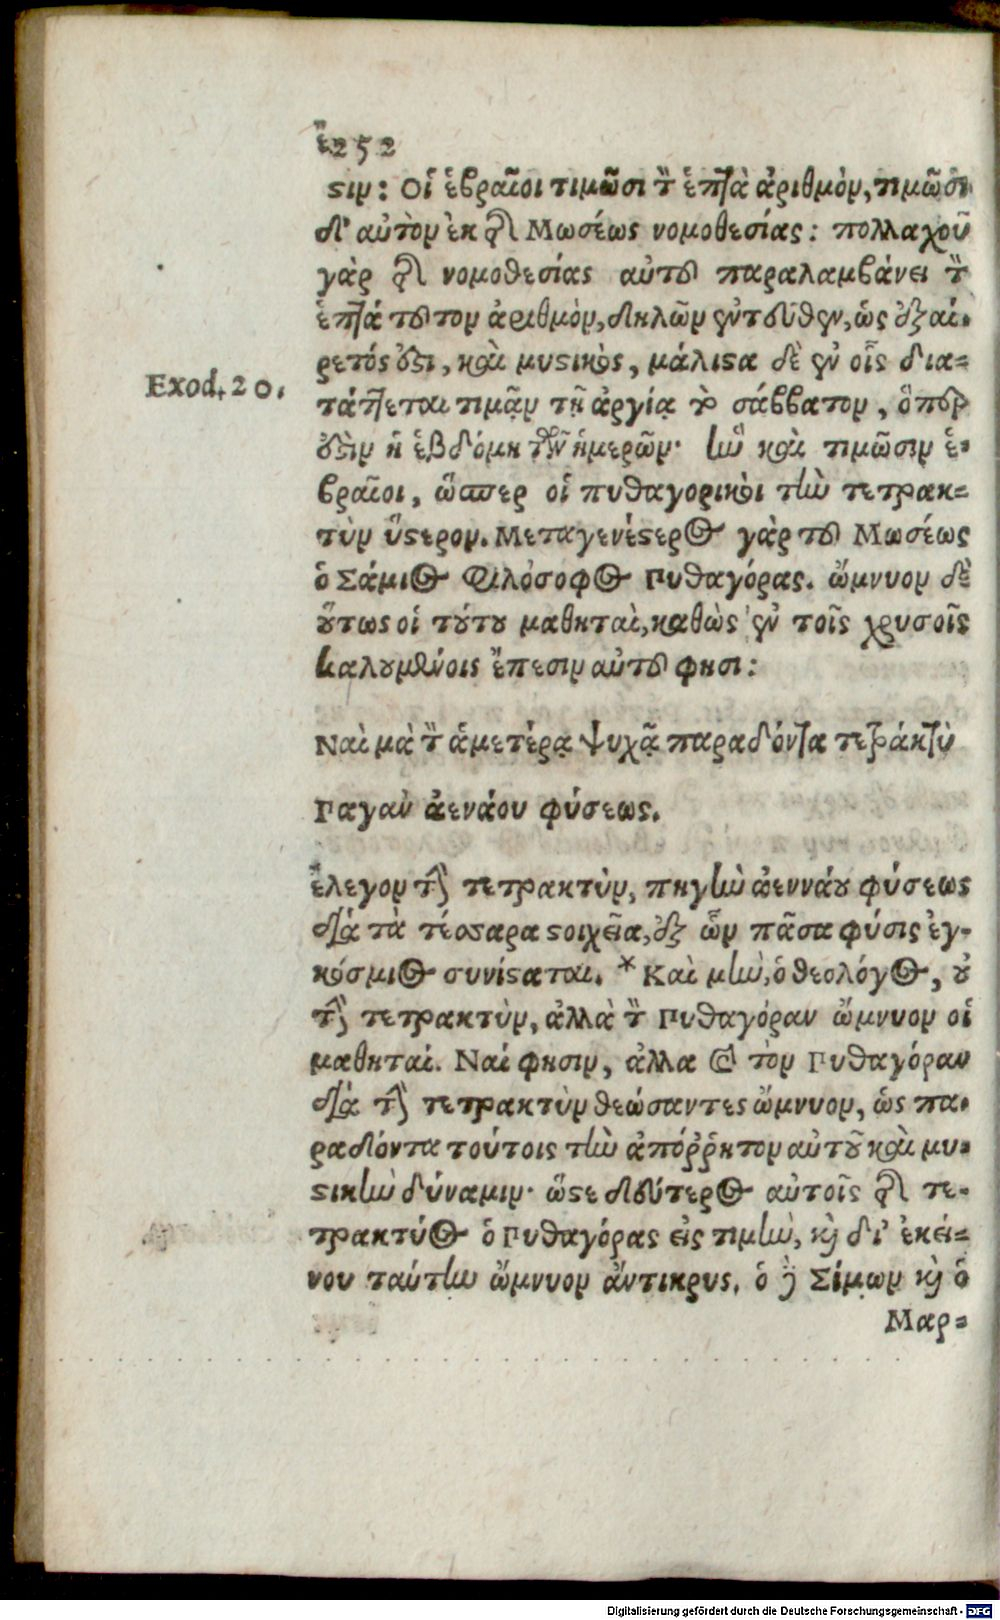 252
ϛιν: Οἱ ἑβραῖοι τιμῶσι τὸν ἑπτὰ ἀριθμὸν, τιμῶσι
δ' αὐτὸν ἐκ τῆς Μωσέως νομοθεσίας: πολλαχοῦ
γὰρ τῆς νομοθεσίας αὐτοῦ παραλαμβάνει τὸν
ἑπτά τοῦτον ἀριθμὸν, δηλῶν ἐντεῦθεν, ὡς ἐξαί-
ρετός ἐϛι, καὶ μυϛικὸς, μάλιϛα δὲ ἐν οἷς δια-
Exod. 20.
τάττεται τιμᾷν τῇ ἀργίᾳ τὸ σάββατον, ὅπερ
ἐϛὶν ἡ ἑβδόμη τῶν ἡμερῶν· ἣν καὶ τιμῶσιν ἑ-
βραῖοι, ὥσπερ οἱ πυθαγορικοὶ τὴν τετρακ-
τὺν ὕϛερον. Μεταγενέϛερος γὰρ τοῦ Μωσέως
ὁ Σάμιος Φιλόσοφος Πυθαγόρας. ὤμνυον δὲ
ȣ̔́τως οἱ τȣ́τȣ μαθηταὶ, καθὼς ἐν τοῖς χρυσοῖς
καλȣμένοις ἔπεσιν αὐτοῦ φησι:
Ναὶ μὰ τὸν ἁμετέρᾳ ψυχᾷ παραδόντα τετράκτὺ
Παγαν ἀενάου φύσεως.
ἔλεγον τὴν τετρακτὺν, πηγὴν ἀεννάȣ φύσεως
διὰ τὰ τέσσαρα ϛοιχεῖα, ἐξ ὧν πᾶσα φύσις ἐγ-
κόσμιος συνίϛαται. * Καὶ μὴν, ὁ θεολόγος, ȣ̓
τὴν τετρακτὺν, ἀλλὰ τὸν Πυθαγόραν ὤμνυον οἱ
μαθηταί. Ναί φησιν, ἀλλα καὶ τὸν Πυθαγόραν
διὰ τὴν τετρακτὺν θεώσαντες ὤμνυον, ὡς πα-
ραδόντα τούτοις τὴν ἀπόῤῥητον αὐτοῦ καὶ μυ-
ϛικὴν δύναμιν· ὥϛε δεύτερος αὐτοῖς τῆς τε-
τρακτύος ὁ Πυθαγόρας εἰς τιμὴν, καὶ δι' ἐκεί-
νου ταύτην ὤμνυον ἄντικρυς. ὁ δὲ Σίμων καὶ ὁ
Μαρ-
Digitalisierung gefördert durch die Deutsche Forschungsgemeinschaft - DFG